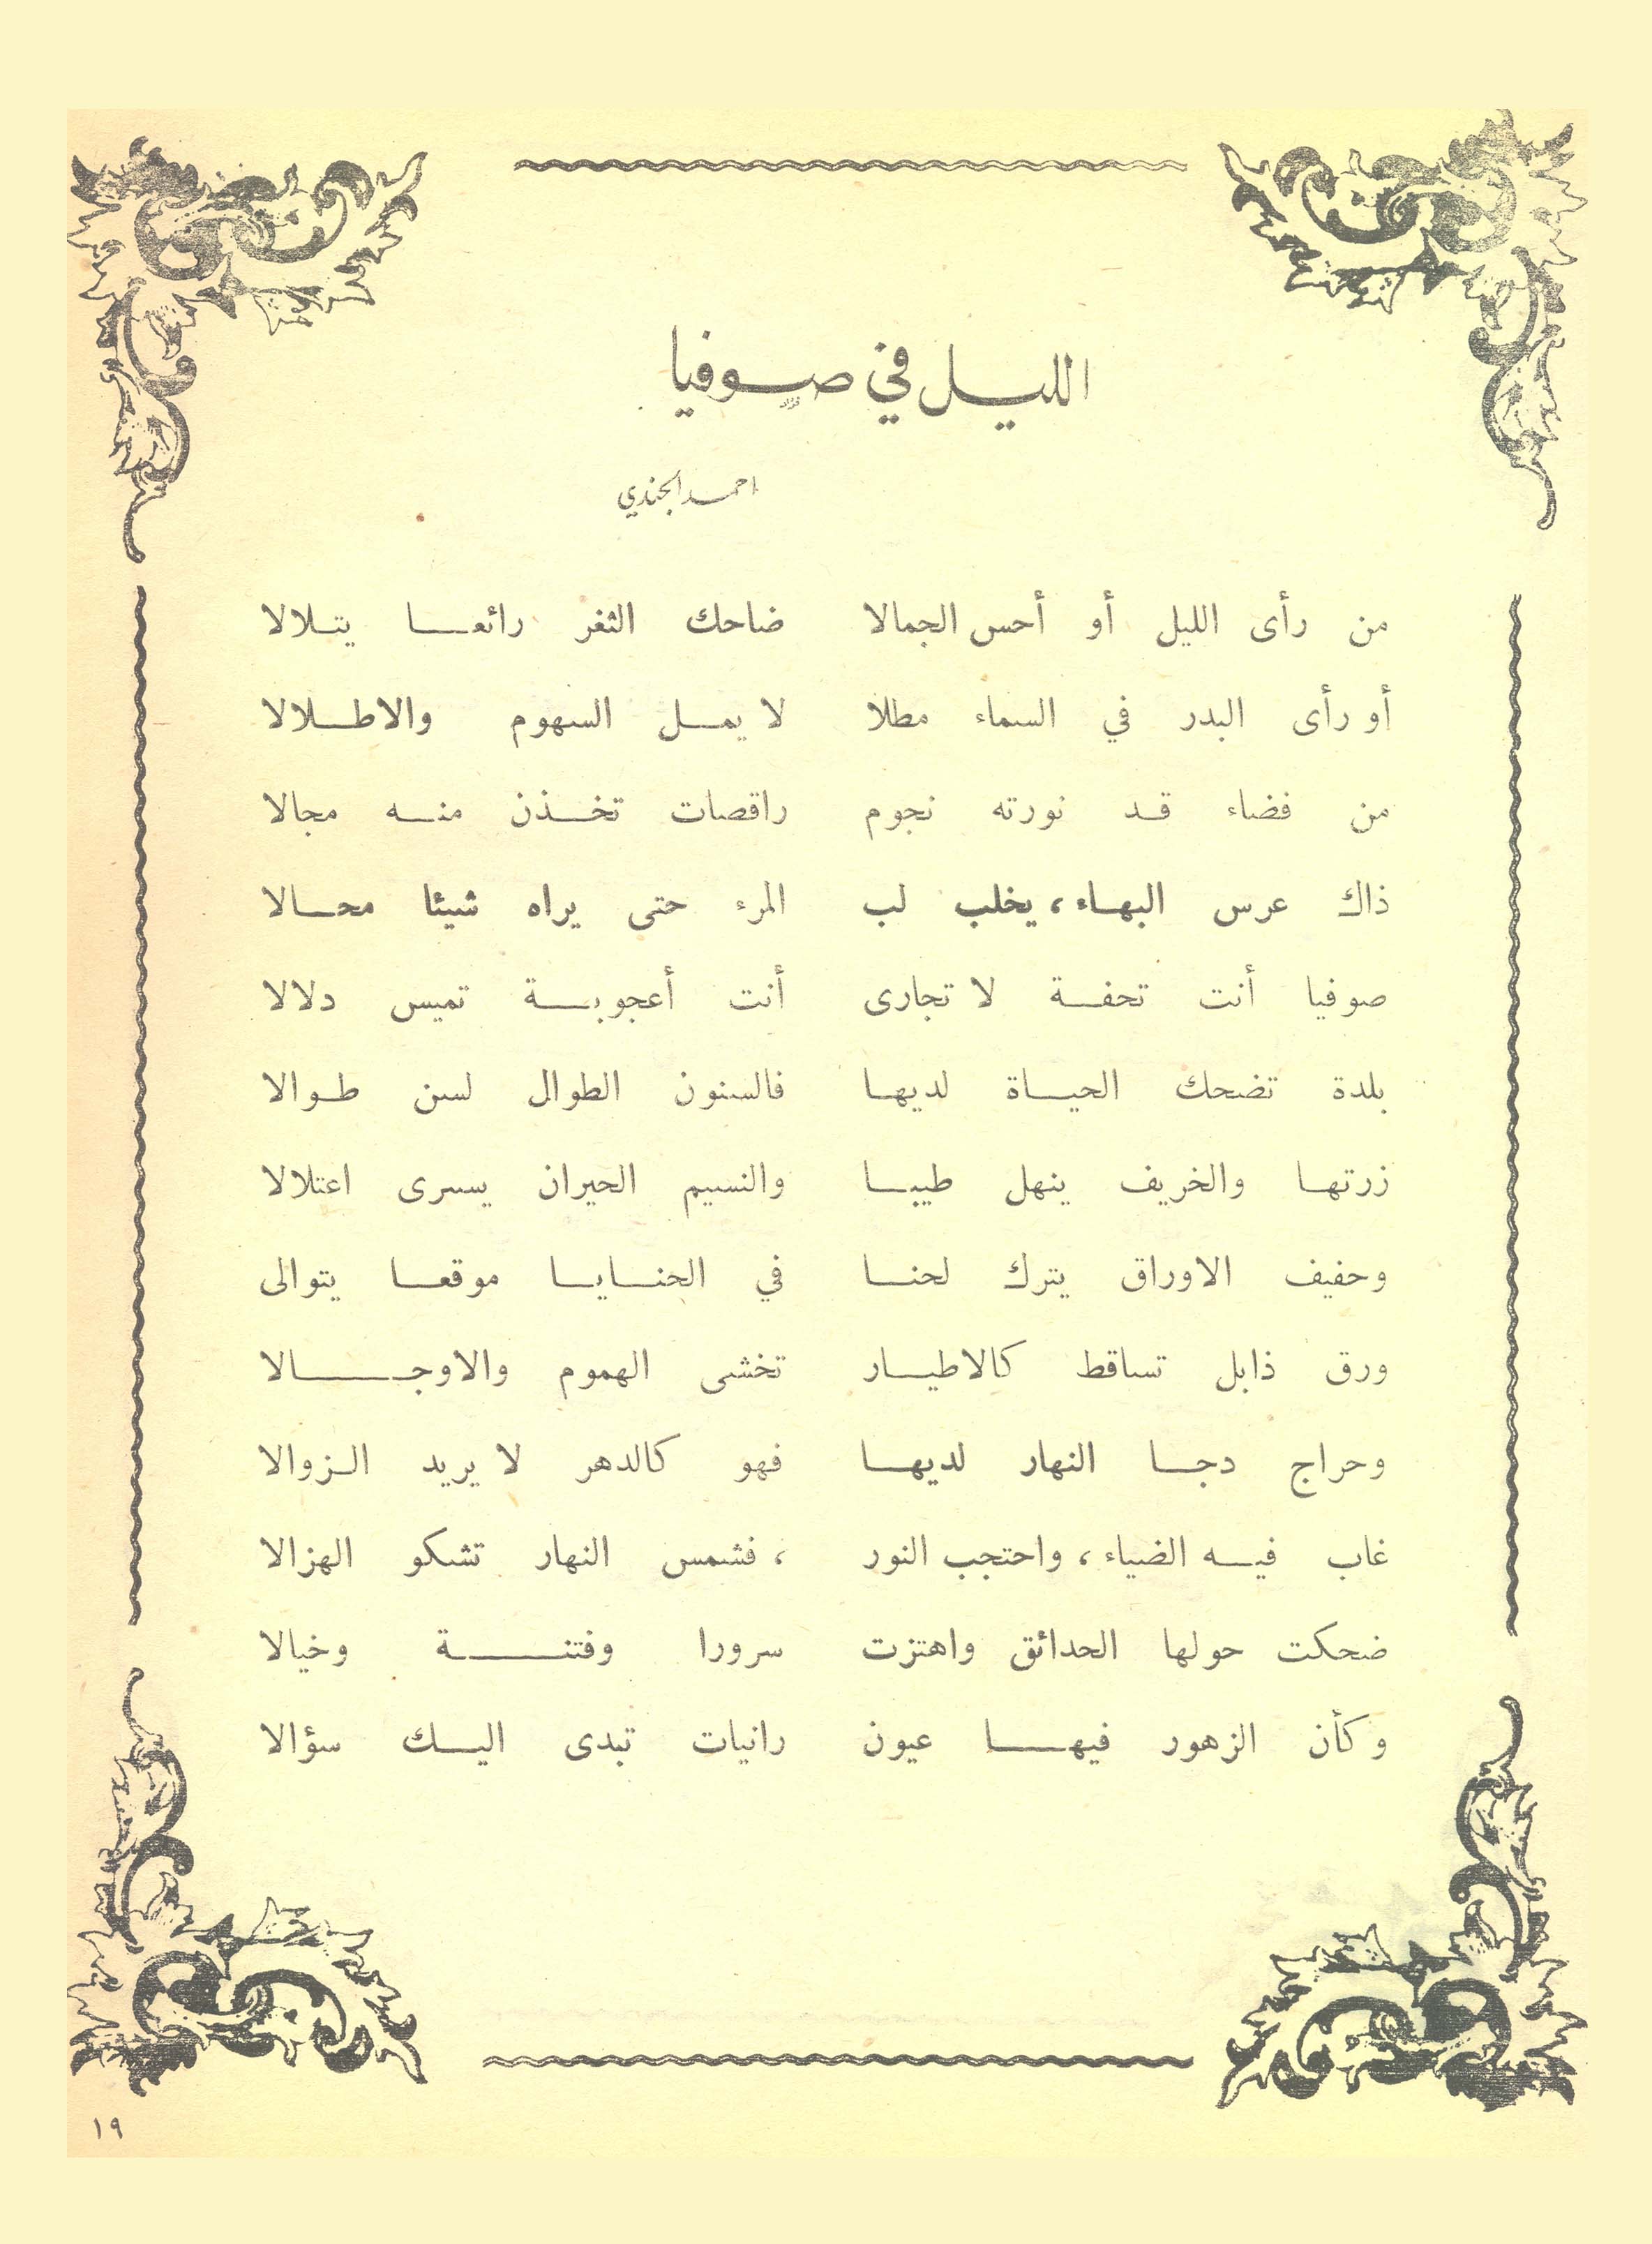 الليل في صوفيا
احمد الجندي
من رأى الليل أو أحس الجمالا ضاحك الثغر رائعا يتلالا
أو رأى البدر في السماء مطلا لا يمل السهوم والاطلالا
من فضاء قد نورته نجوم راقصات تخذن منه مجالا
ذاك عرس البهاء، يخلب لب المرء حتى يراه شيئا محالا
صوفيا أنت تحفة لا تجارى أنت أعجوبة تميس دلالا
بلدة تضحك الحياة لديها فالسنون الطوال لسن طوالا
زرتها والخريف ينهل طيبا والنسيم الحيران يسرى اعتلالا
وحفيف الاوراق يترك لحنا في الحنايا موقعا يتوالى
ورق ذابل تساقط كالاطيار تخشى الهموم والاوجالا
وحراج دجا النهار لديها فهو كالدهر لا يريد الزوالا
غاب فيه الضياء، واحتجب النور ، فشمس النهار تشكو الهزالا
ضحكت حولها الحدائق واهتزت سرورا وفتنة وخيالا
وكأن الزهور فيها عيون رانيات تبدى اليك سؤالا
١٩